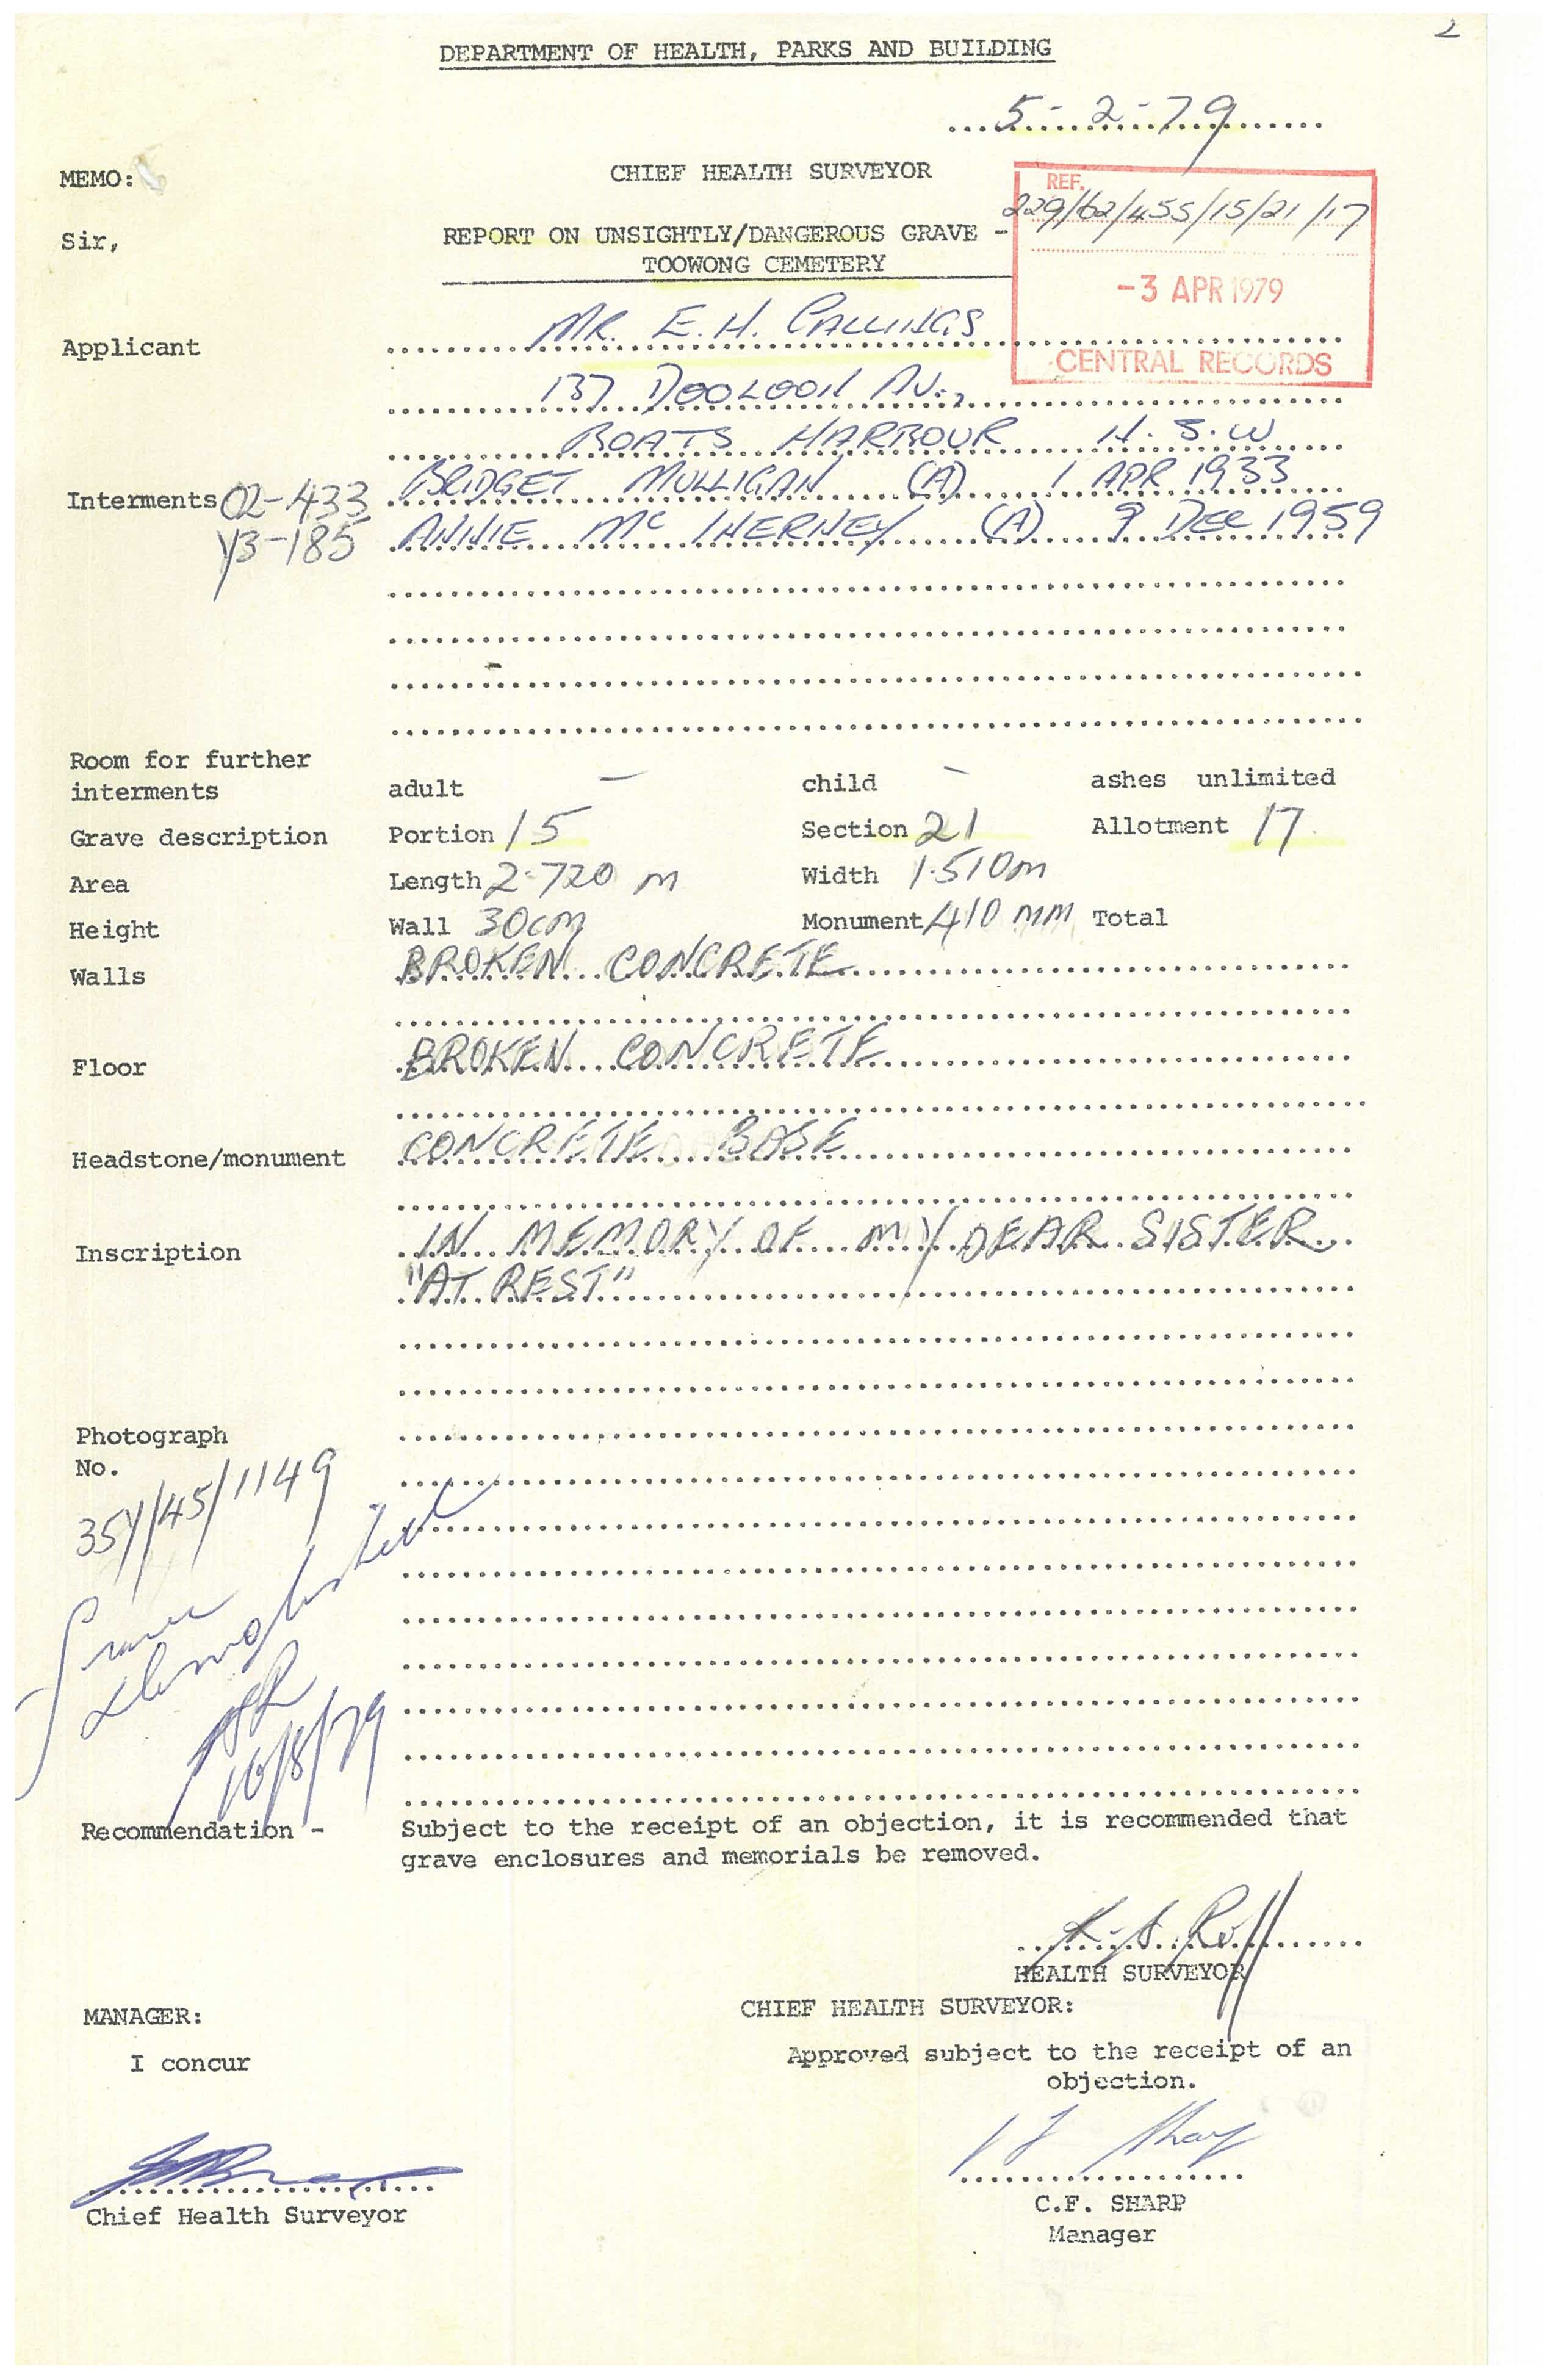 2
DEPARTMENT OF HEALTH, PARKS AND BUILDING
5-2-79
MEMO:
CHIEF HEALTH SURVEYOR
REF.
229/62/455/15/21/17
Sir,
REPORT ON UNSIGHTLY/DANGEROUS GRAVE -
TOOWONG CEMETERY
-3 APR 1979
CENTRAL RECORDS
Applicant MR. E.H. CALLINGS
137 DOOLOON AV.,
BOATS HARBOUR N.S.W
Interments 02-433 BRIDGET MULLIGAN (A) 1 APR 1933
Y3-185 ANNIE Mc INERNEY (A) 9 DEC 1959
Room for further
interments adult — child — ashes unlimited
Grave description Portion 15 Section 21 Allotment 17
Area Length 2.720 m Width 1.510m
Height Wall 30cm Monument 410 mm Total
Walls BROKEN CONCRETE
Floor BROKEN CONCRETE
Headstone/monument CONCRETE BASE
Inscription IN MEMORY OF MY DEAR SISTER
"AT REST"
Photograph
No.
35Y/45/1149
Grave
demolished
16/8/79
Recommendation - Subject to the receipt of an objection, it is recommended that
grave enclosures and memorials be removed.
HEALTH SURVEYOR
MANAGER:
CHIEF HEALTH SURVEYOR:
I concur
Approved subject to the receipt of an
objection.
Chief Health Surveyor
C.F. SHARP
Manager